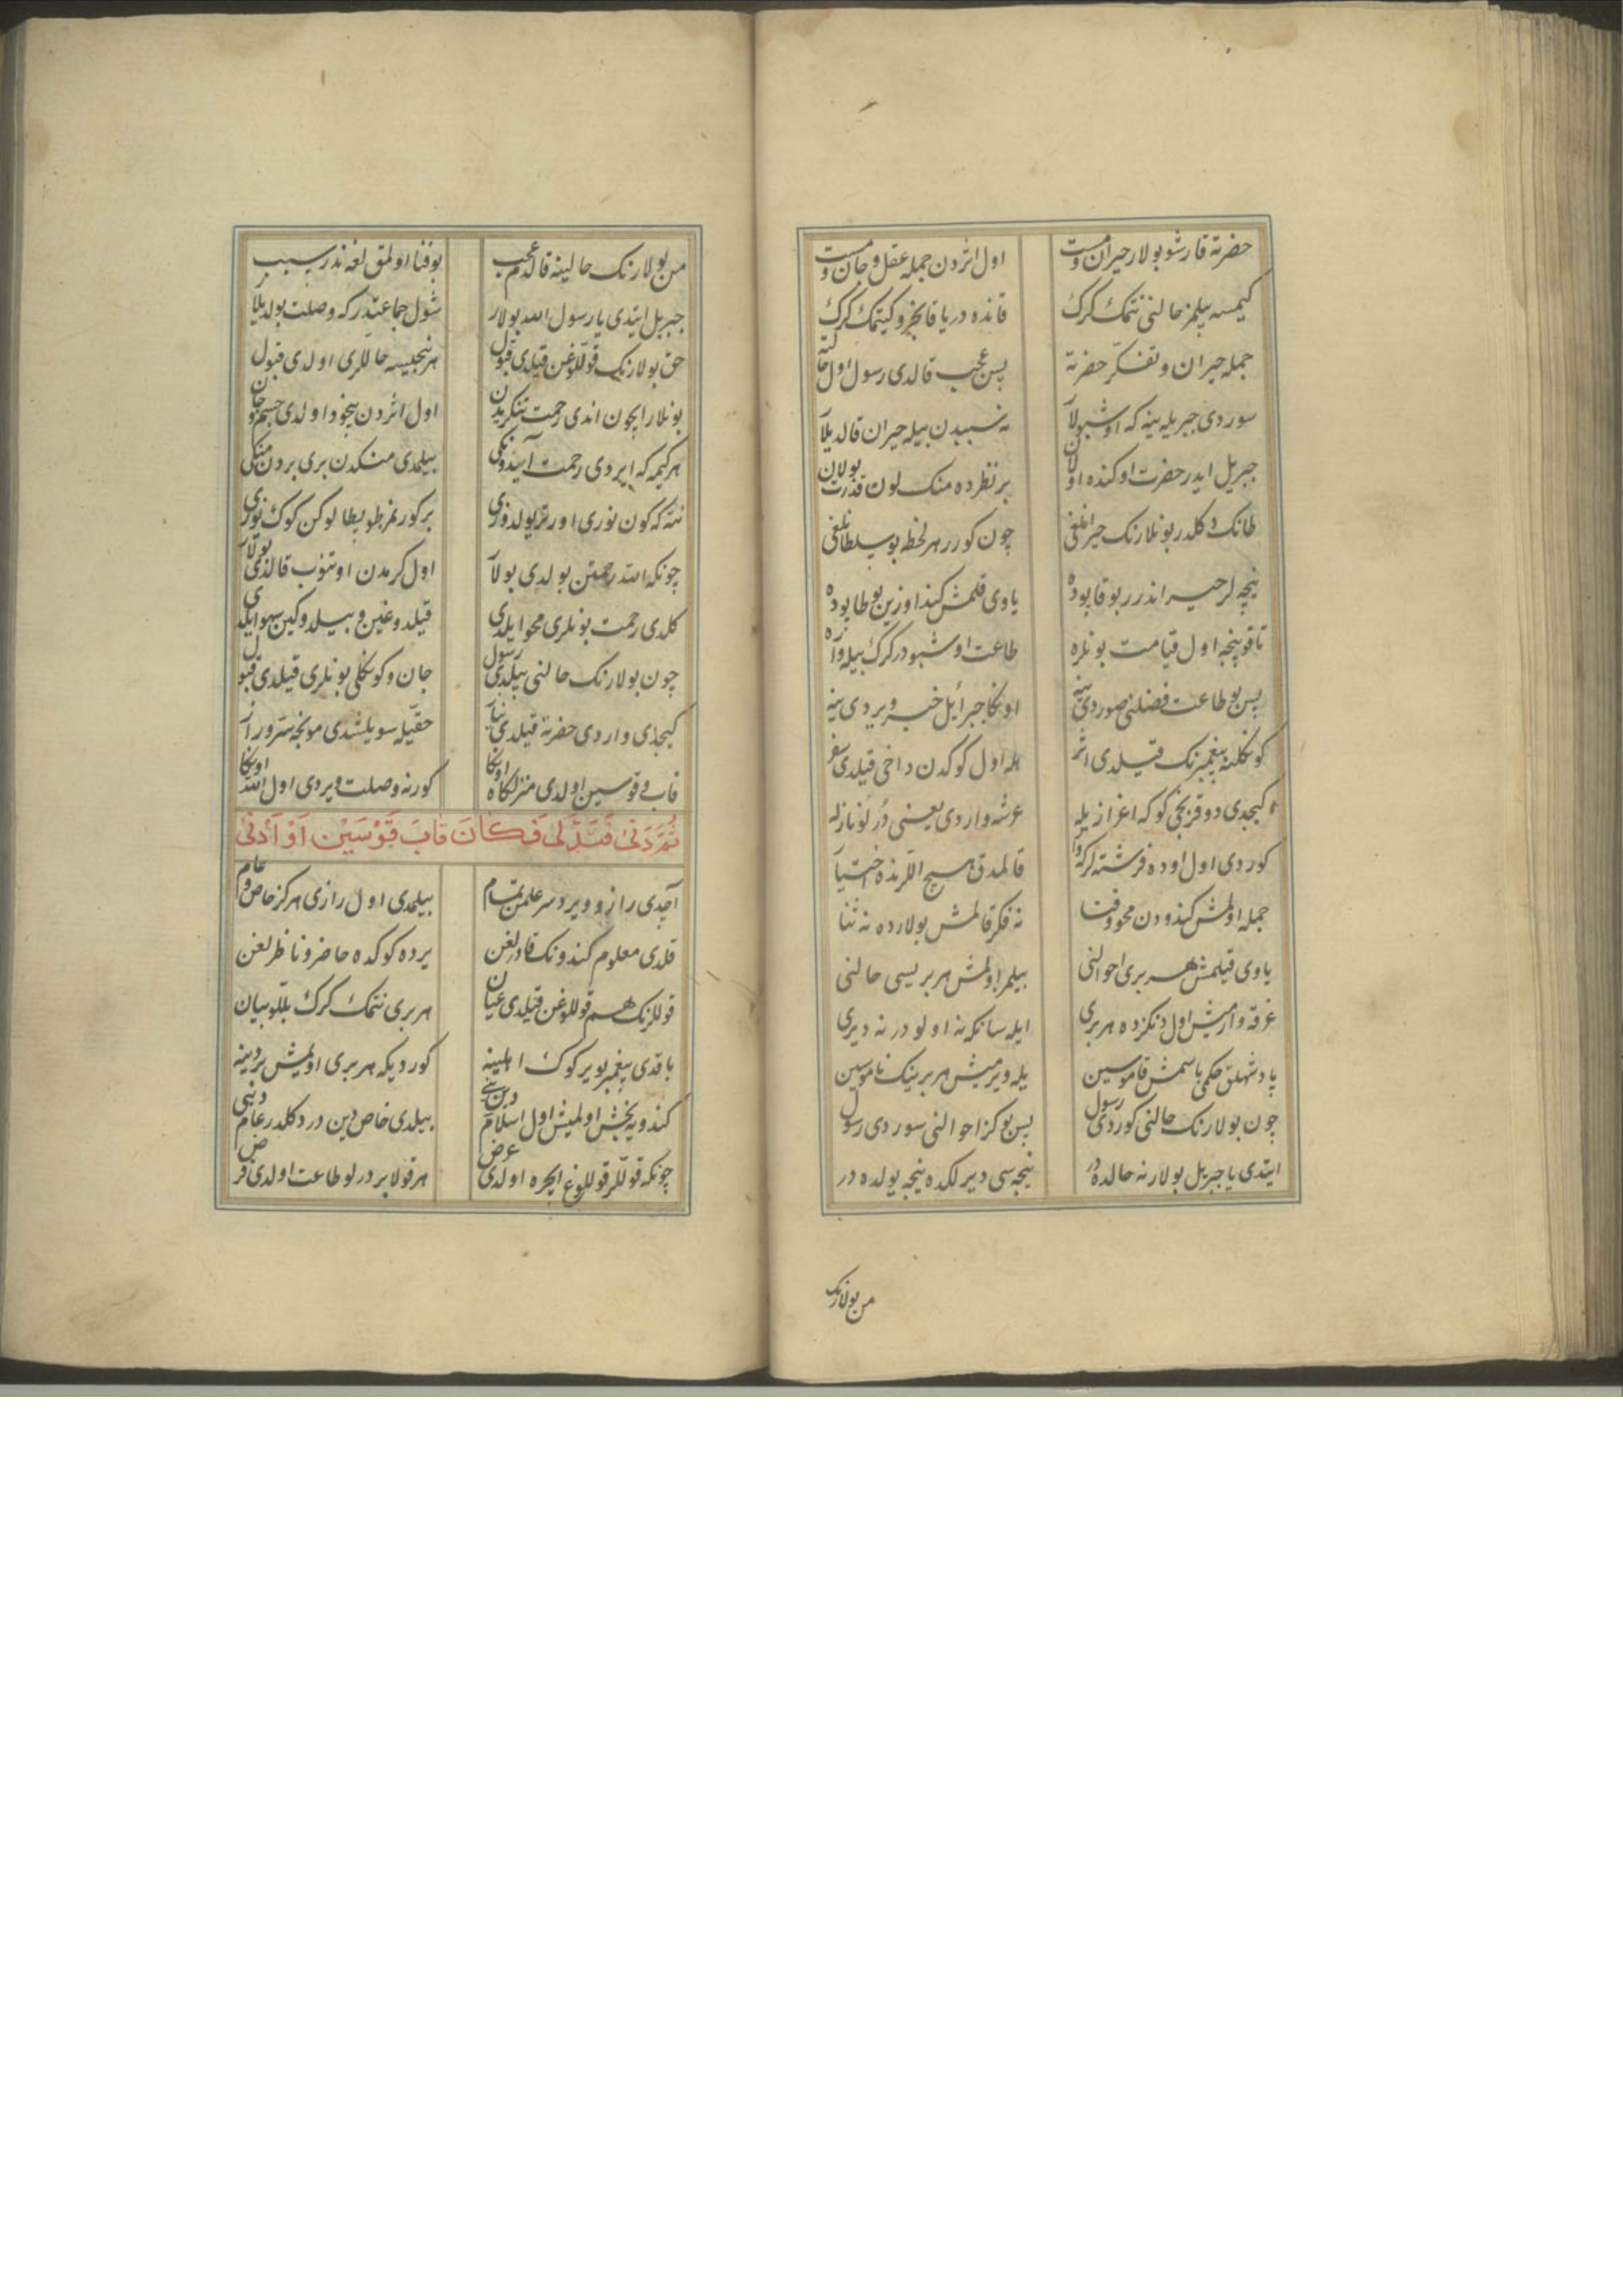 حضرته قارشو بولار حیران و مست اول اثردن جمله عقل و جان و مست
کیمسه بیلمز حالنی نتمک کرک قانده دریا قانجرو کیتمک کرک
جمله حیران و تفکر حضرته پس عجب قالدی رسول اول حالته
سوردی جبریله ینه که اوشبولار نه سببدن بیله حیران قالدیلار
جبریل ایدر حضرت اوکنده اولان بر نظرده منک لون قدرت بولان
طانک دکلدر بونلارنک حیرانلغی چون کورر هر لحظه بو سلطانلغی
نیچه لر حیراندرر بو قاپوده یاوی قلمش کند اوزین بو طاپوده
تا قوپنجه اول قیامت بونلره طاعت اوشبودر کرک بیله واره
پس بو طاعت فضلنی صوردی ینه اونکا جبرائل خبر ویردی ینه
کونکلنه پیغمبرنک قیلدی اثر هله اول کوکدن داخی قیلدی سفر
کیجدی دوقزنجی کوکه اعزازیله عرشه واردی یعنی درلو نازله
کوردی اول اوده فرشته لر که وار قالمدق هیچ اللرنده اختیار
جمله اولمش کندودن محو و فنا نه فکر قالمش بولارده نه ثنا
یاوی قیلمش هر بری احوالنی بیلمز اولمش هر بریسی حالنی
غرقه وارمش اول دنکزده هر بری ایله سانکه نه اولودر نه دیری
پادشهلق حکمی باسمش قاموسین یله ویرمیش هر برینک ناموسین
چون بولارنک حالنی کوردی رسول پس بو کز احوالنی سوردی رسول
ایتدی یا جبریل بولار نه حالده در نیجه سی دیرلکده نیجه یولده در
من بولارنک
من بولارنک حالینه قالدم عجب بو فنا اولمق لغه ندر سبب
جبریل ایتدی یا رسول الله بولار شول جماعتدر که وصلت بولدیلار
حق بولارنک قوللوغن قیلدی قبول هر نیجیسه حاللری اولدی قبول
بونلار ایچون اندی رحمت تنکریدن اول اثردن بیخود اولدی جسم و جان
هر کیمه که ایردی رحمت آیدونکی بیلمدی منکدن بری بردن منکی
نته که کون نوری اورتر یولدوزی بر کورنمز طولیطا لوکن کوک یوزی
چونکه الله رحمتن بولدی بولار اول کرمدن اوتنوب قالدی بولار
کلدی رحمت بونلری محو ایلدی قیلدوغین و بیلدوکین سهو ایلدی
چون بولارنک حالنی بیلدی رسول جان و کونکلی بونلری قیلدی قبول
کیجدی واردی حضرته قیلدی نیاز حقیله سویلشدی مونجه سر و راز
قاب قوسین اولدی منزلکاه اونکا کورنه وصلت ویردی اول الله اونکا
ثُمَّ دَنىٰ فَتَدَلّٰى فَكانَ قابَ قَوْسَيْنِ اَوْ اَدْنىٰ
آچدی راز و ویردی سر علمن تمام بیلمدی اول رازی هرکز خاص و عام
قلدی معلوم کندونک قادرلغن یرده کوکده حاضر و ناظرلغن
قوللرنک هم قوللوغن قیلدی عیان هر بری نتمک کرک بللو بیان
باقدی پیغمبر بو یر کوک اهلینه کوردیکه هر بری اولمش بر دینه
کندویه بخش اولمیش اول اسلام دینی بیلدی خاص دین در دکلدر عام دینی
چونکه قوللر قوللوغ ایچره اولدی عرض هر قولا بر درلو طاعت اولدی فرض